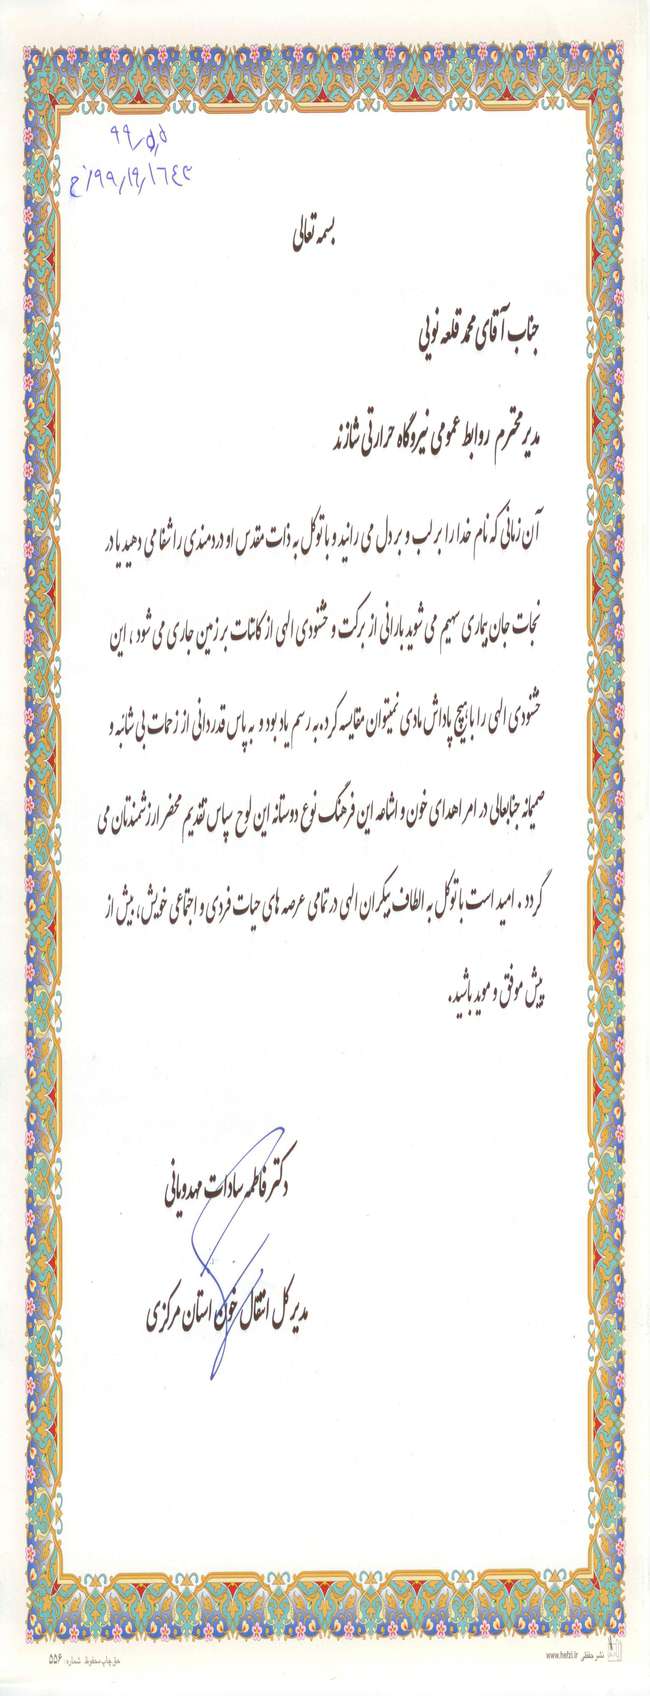 ۹۹/۵/۵
۹۹/۱۹/۱۶۴۳/خ
بسمه تعالی
جناب آقای محمد قلعه نویی
مدیر محترم روابط عمومی نیروگاه حرارتی شازند
آن زمانی که نام خدا را بر لب و بر دل می رانید و با توکل به ذات مقدس او دردمندی را شفا می دهید یا در
نجات جان بیماری سهیم می شوید بارانی از برکت و خشنودی الهی از کائنات بر زمین جاری می شود ، این
خشنودی الهی را با هیچ پاداش مادی نمیتوان مقایسه کرد.به رسم یاد بود و به پاس قدردانی از زحمات بی شائبه و
صمیمانه جنابعالی در امر اهدای خون و اشاعه این فرهنگ نوع دوستانه این لوح سپاس تقدیم محضر ارزشمندتان می
گردد . امید است با توکل به الطاف بیکران الهی در تمامی عرصه های حیات فردی و اجتماعی خویش، بیش از
پیش موفق و موید باشید.
دکتر فاطمه سادات مهدویانی
مدیر کل انتقال خون استان مرکزی
حق چاپ محفوظ شماره: ۵۵۶
www.hefzi.ir نشر حفظی